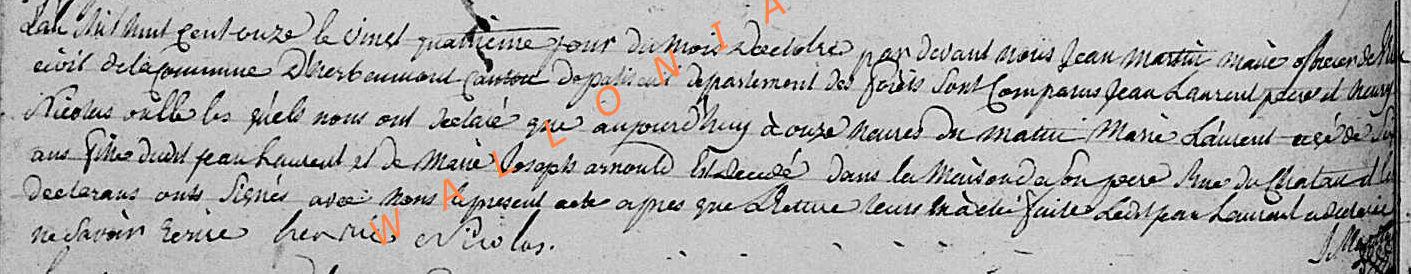 L'an Mil huit Cent onze le vingt quatrieme jour du mois Doctobre par devant nous Jean Martin maire officier de
civil de la Commune Dherbeumont Canton de paliseul departement des forêts sont Comparus Jean Laurent pere et henry
Nicolas oulle les quels nous ont declaré que aujourdhuy à onze heures du matin Marie Laurent agé de
ans fille dudit jean Laurent et de Marie Joseph arnould Est decedé dans la Maison de son pere Rue du Chatau et les
declarans onts signés avec nous le present acte apres que Lecture leurs En a été faite Ledit jean Laurent a declaré
ne savoir Ecrire henrie Nicolas.
J Martin
WALLONIA